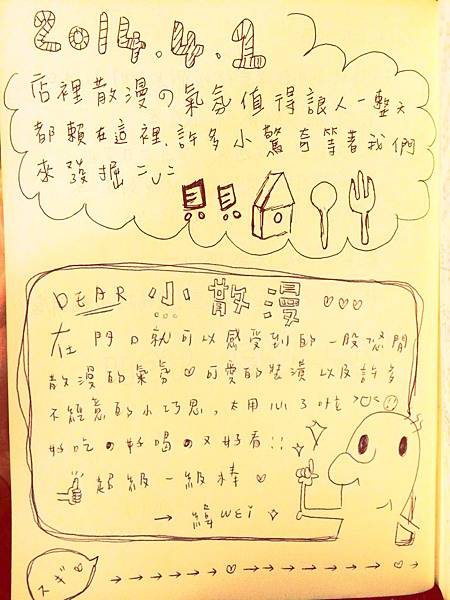 2014.4.1
店裡散漫の氣氛值得讓人一整天
都賴在這裡,許多小驚奇等著我們
來發掘
DEAR 小散漫 ♡♡♡
在門口就可以感受到的一股悠閒
散漫的氣氛♡可愛的裝潢以及許多
不經意的小巧思,太用心了啦
好吃の好喝の又好看!!
超級一級棒♡
→ 緯WEI